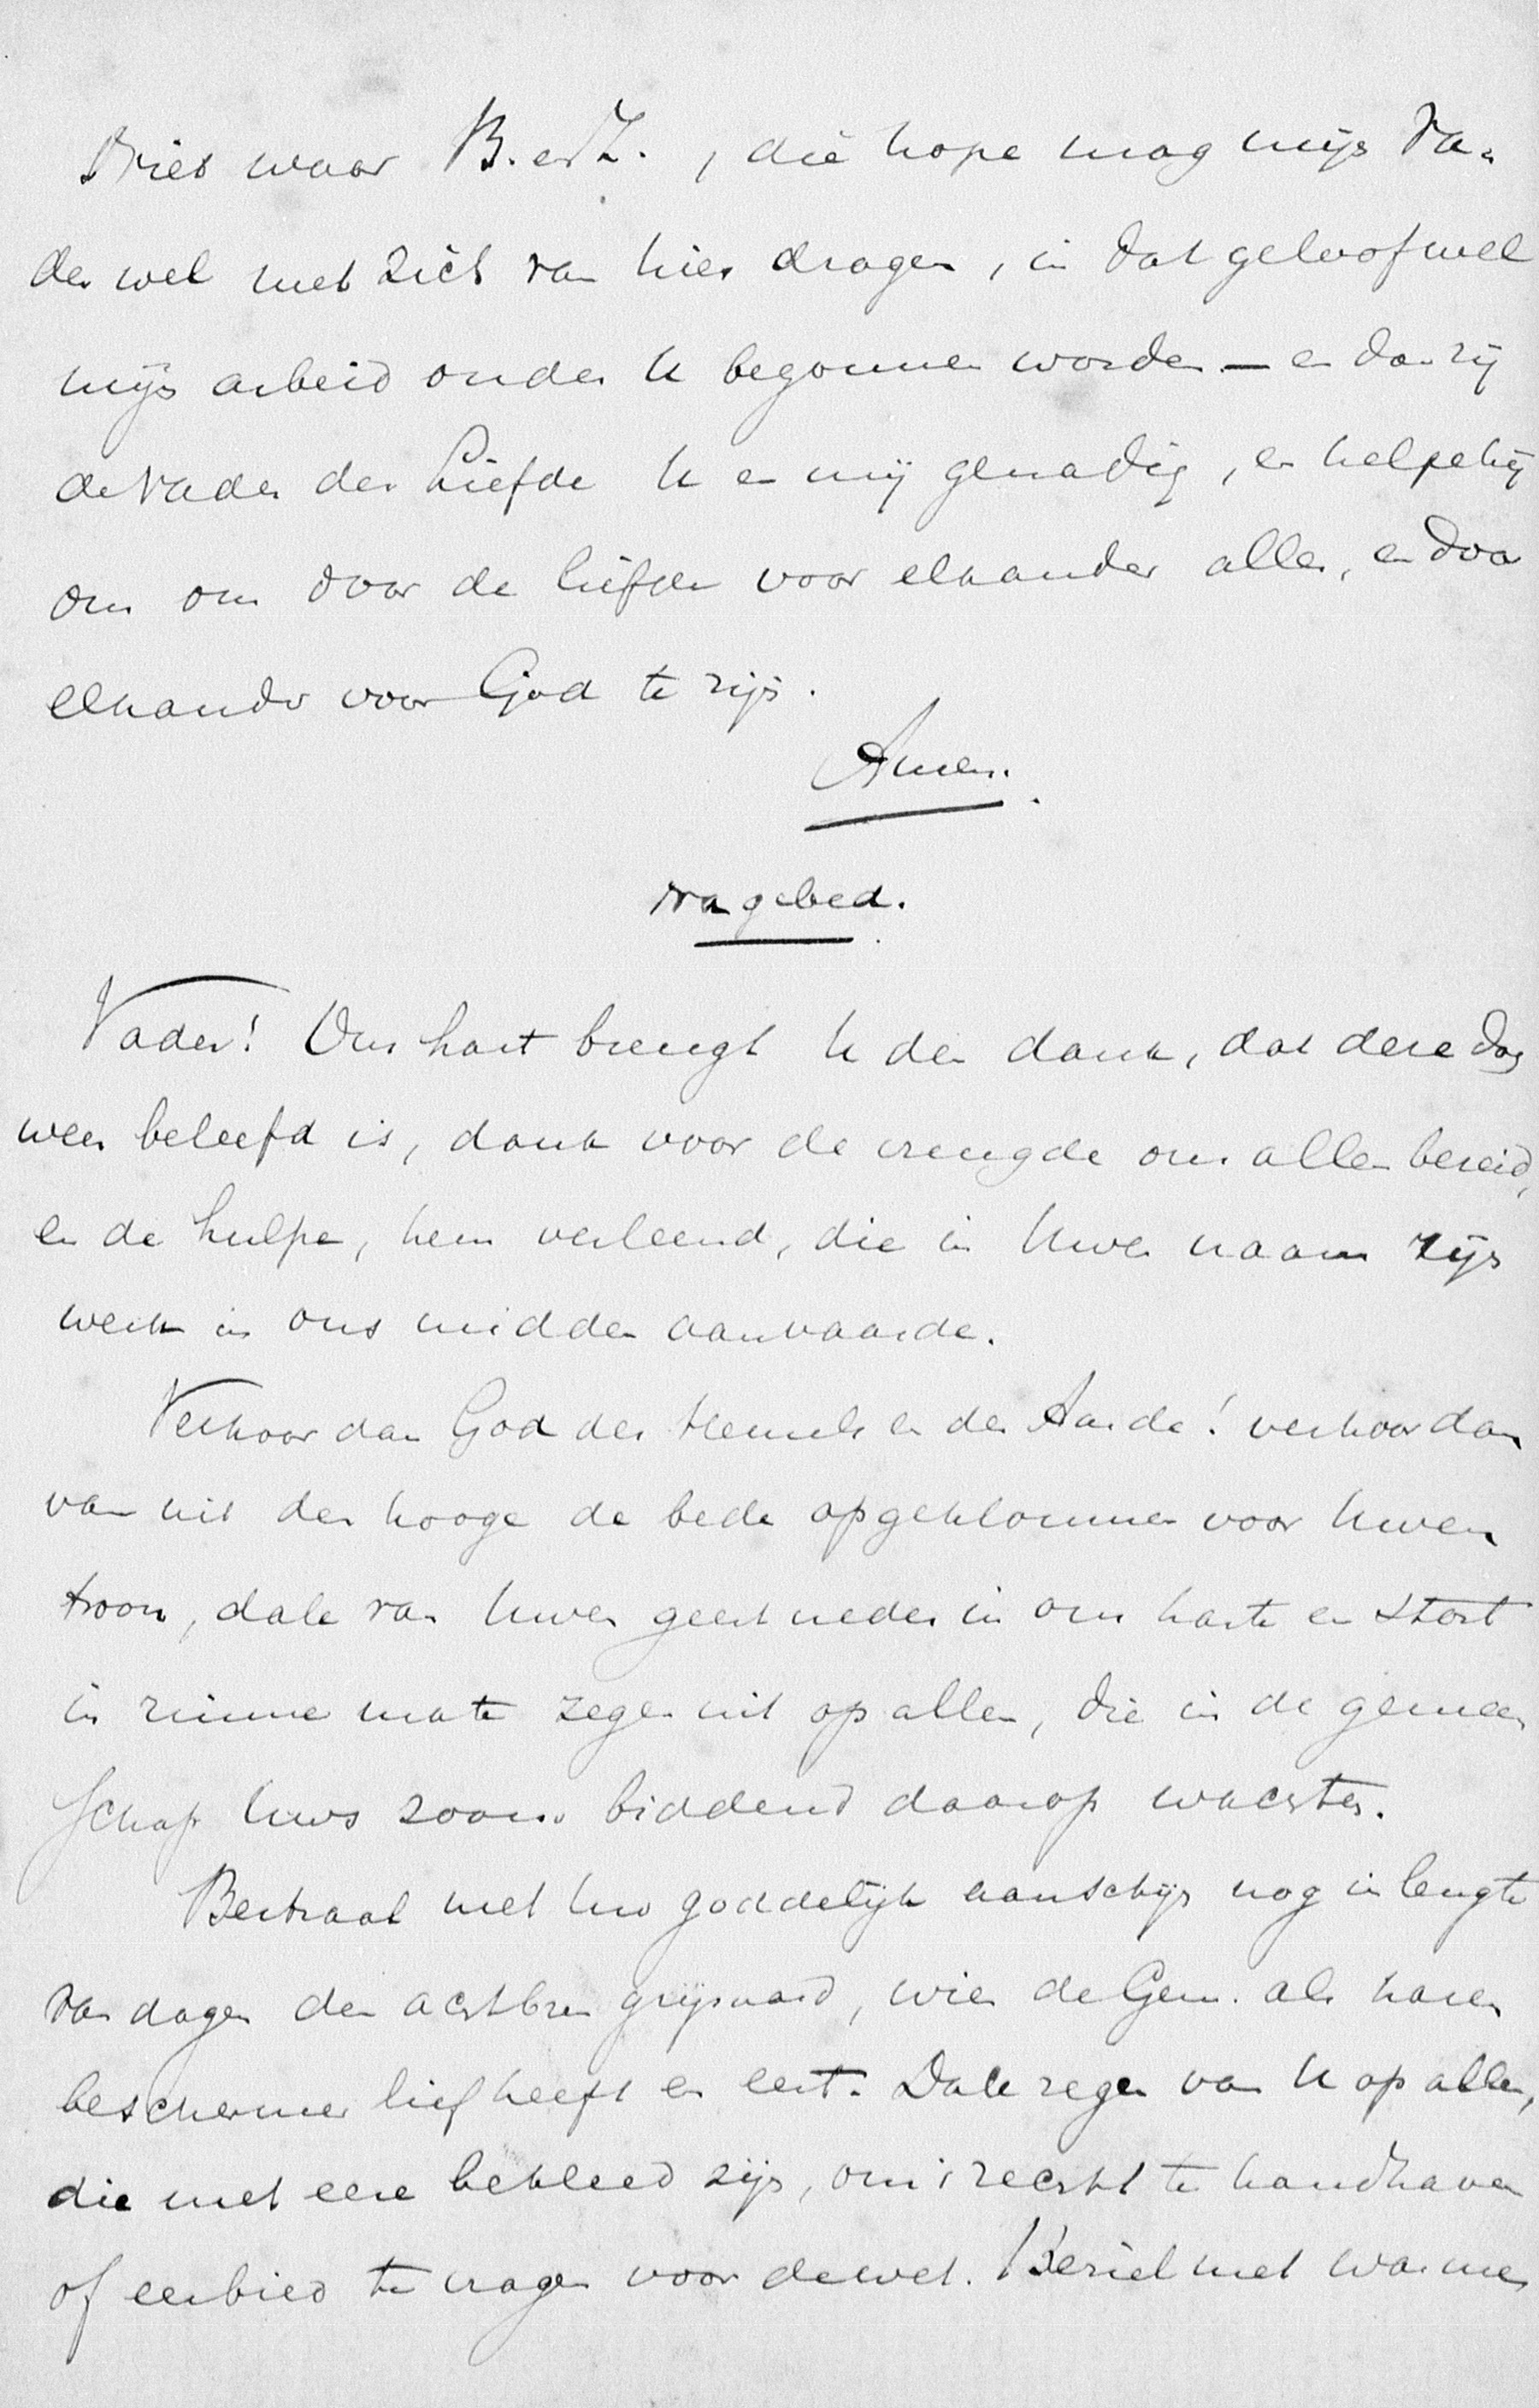 Niet waar B. en Z., die hope mag mijn Va-
der wel met zich van hier dragen, in dat geloof wel
mijn arbeid onder U begonnen worden — en dan zij
de Vader der Liefde U en mij genadig, en helpe hij
ons om door de liefde voor elkander allen, en door
elkander voor God te zijn.
Amen.
Nagebed.
Vader! Ons hart brengt U den dank, dat deze dag
weer beleefd is, dank voor de vreugde ons allen bereid,
en de hulpe, hem verleend, die in Uwen naam zijn
werk in ons midden aanvaarde.
Verhoor dan God des Hemels en der Aarde! verhoor dan
van uit den hooge de bede opgeklommen voor Uwen
troon, dale van Uwen geest neder in ons harte en stort
in ruime mate zegen uit op allen, die in de gemeen
schap Uws zoons biddend daarop wachten.
Bestraal met Uw goddelijk aanschijn nog in lengte
van dagen den achtbren grijsaard, wien de Gem. als haren
beschermer lief heeft en eert. Dale zegen van U op allen,
die met eere bekleed zijn, om 't recht te handhaven
of eerbied te vragen voor de wet. Beziel met warmen